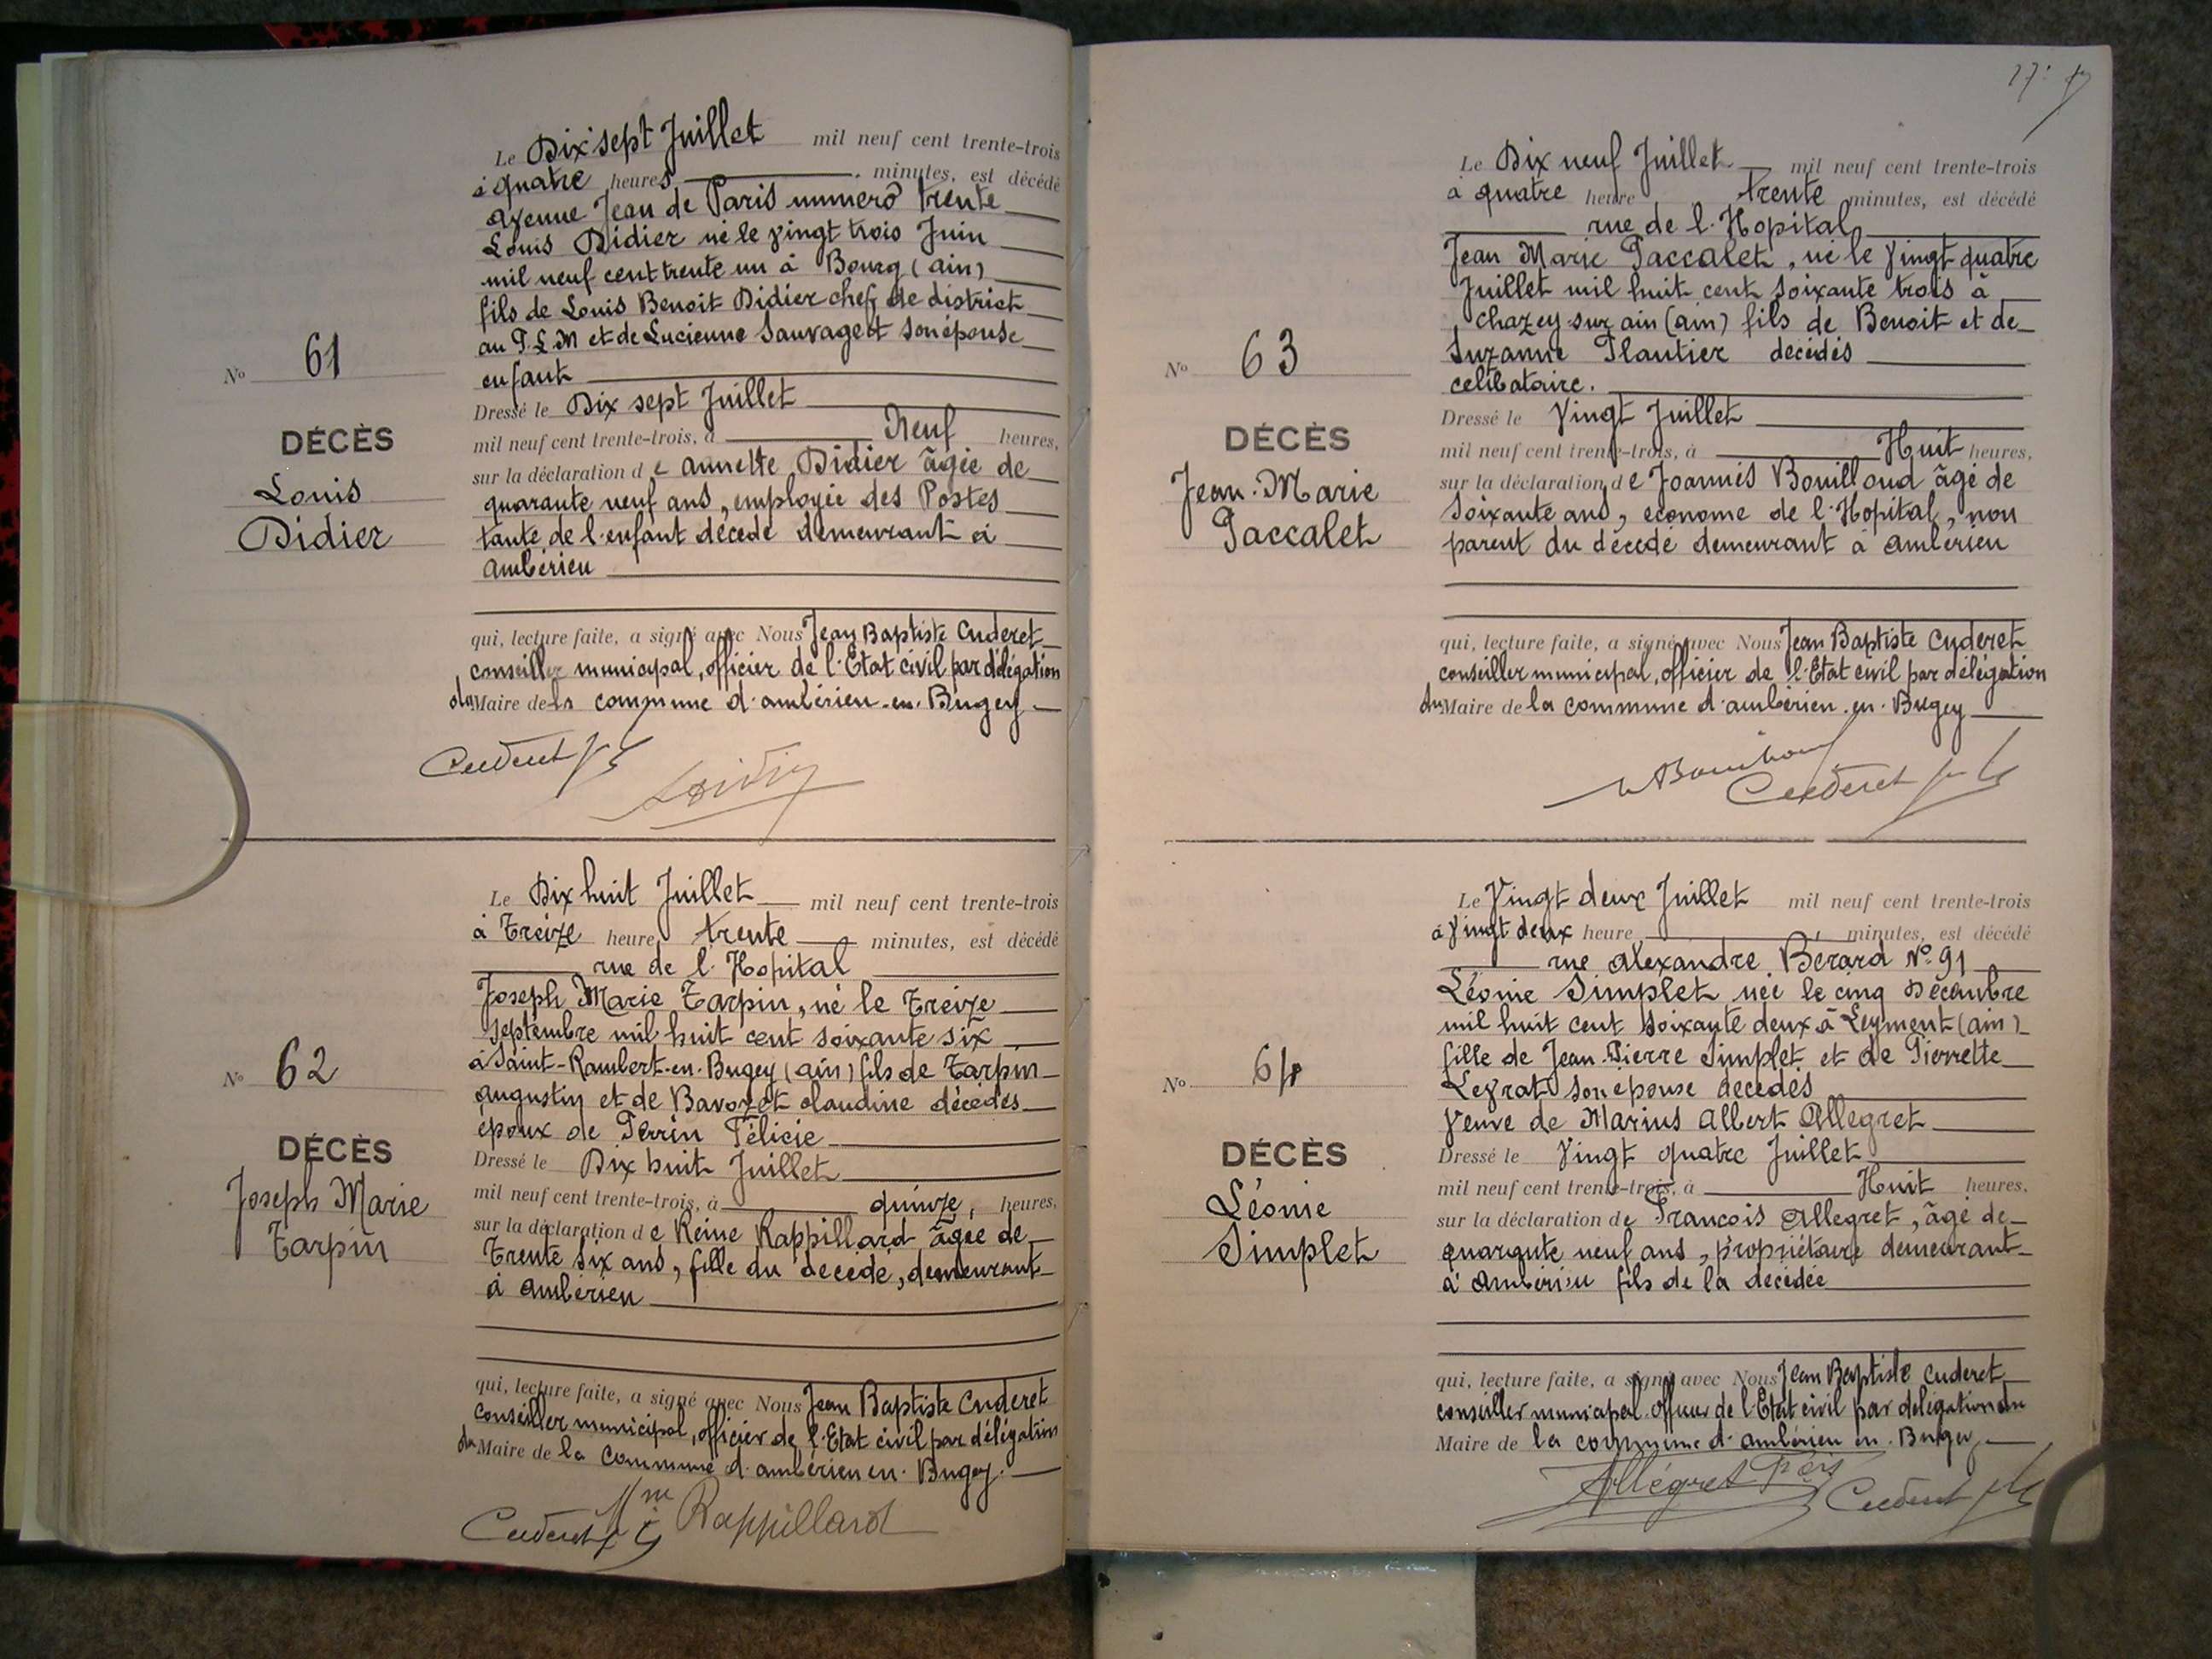 Le Dix sept Juillet mil neuf cent trente-trois
à quatre heures minutes, est décédé
avenue Jean de Paris numero trente
Louis Didier né le vingt trois Juin
mil neuf cent trente un à Bourg (ain)
fils de Louis Benoit Didier chef de district
au P.L.M et de Lucienne Sauvageot son épouse
enfant
Dressé le Dix sept Juillet
mil neuf cent trente-trois, à Neuf heures,
sur la déclaration de annette Didier âgée de
quarante neuf ans, employée des Postes
tante de l'enfant décédé demeurant à
ambérieu
qui, lecture faite, a signé avec Nous Jean Baptiste Cuderet
conseiller municipal, officier de l'Etat civil par délégation
du Maire de la commune d'ambérieu-en-Bugey
Cuderet
No 61
DÉCÈS
Louis
Didier
Le Dix huit Juillet mil neuf cent trente-trois
à treize heure trente minutes, est décédé
rue de l'Hopital
Joseph Marie Tarpin, né le treize
septembre mil huit cent soixante six
à Saint-Rambert-en-Bugey (ain) fils de Tarpin
augustin et de Bavozet claudine décédés
époux de Perrin Félicie
Dressé le Dix huit Juillet
mil neuf cent trente-trois, à quinze, heures,
sur la déclaration de Reine Rappillard âgée de
trente six ans, fille du décédé, demeurant
à ambérieu
qui, lecture faite, a signé avec Nous Jean Baptiste Cuderet
conseiller municipal, officier de l'Etat civil par délégation
du Maire de la commune d'ambérieu en Bugey.
Cuderet Mme Rappillard
No 62
DÉCÈS
Joseph Marie
Tarpin
Le Dix neuf Juillet mil neuf cent trente-trois
à quatre heure trente minutes, est décédé
rue de l'Hopital
Jean Marie Paccalet, né le vingt quatre
Juillet mil huit cent soixante trois à
chazey-sur-ain (ain) fils de Benoit et de
Suzanne Plantier décédés
célibataire.
Dressé le Vingt Juillet
mil neuf cent trente-trois, à Huit heures,
sur la déclaration de Joannès Bouilloud âgé de
soixante ans, économe de l'Hopital, non
parent du décédé demeurant à ambérieu
qui, lecture faite, a signé avec Nous Jean Baptiste Cuderet
conseiller municipal, officier de l'Etat civil par délégation
du Maire de la commune d'ambérieu-en-Bugey
Cuderet
No 63
DÉCÈS
Jean-Marie
Paccalet
Le Vingt deux Juillet mil neuf cent trente-trois
à Vingt deux heure minutes, est décédé
rue alexandre Bérard No 91
Léonie Simplet née le cinq Décembre
mil huit cent soixante deux à Leyment (ain)
fille de Jean-Pierre Simplet et de Pierrette
Leyrat son épouse décédés
veuve de Marius Albert Allegret
Dressé le Vingt quatre Juillet
mil neuf cent trente-trois, à Huit heures,
sur la déclaration de François Allegret, âgé de
quarante neuf ans, propriétaire demeurant
à ambérieu fils de la décédée
qui, lecture faite, a signé avec Nous Jean Baptiste Cuderet
conseiller municipal officier de l'Etat civil par délégation du
Maire de la commune d'ambérieu en Bugey
Allégret Fçois Cuderet
No 64
DÉCÈS
Léonie
Simplet